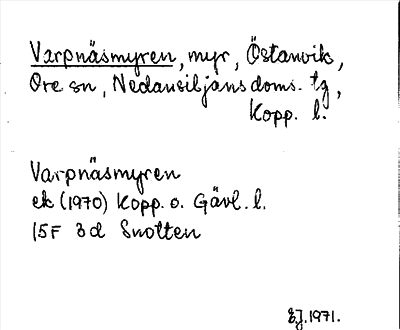 Varpnäsmyren, myr, Östanvik,
Ore sn, Nedansiljans doms. tg,
Kopp. l.
Varpnäsmyren
ek (1970) Kopp. o. Gävl. l.
15F 3d Snotten
EJ. 1971.